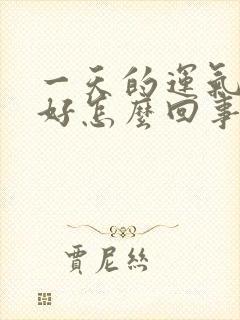 一天的運氣
好怎麼回事
賈尼絲